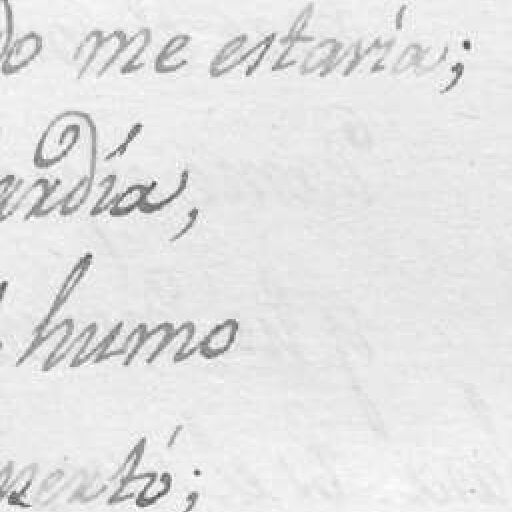 do me estaria;
ardía,
humo
entó;